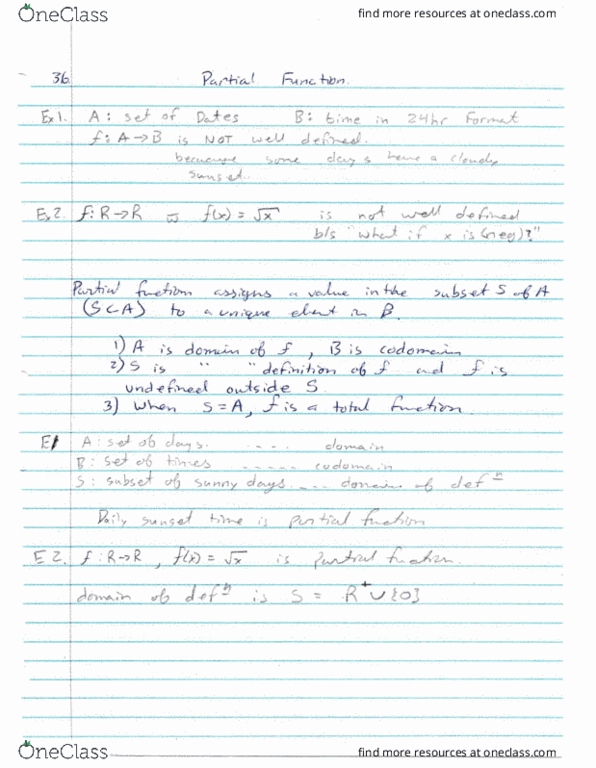 OneClass
find more resources at oneclass.com
36 Partial Function.
Ex1. A: set of Dates B: time in 24hr Format
f: A→B is NOT well defined.
because some days have a cloudy
sunset.
Ex2. f: R→R f(x) = √x is not well defined
b/s "what if x is (neg)?"
Partial function assigns a value in the subset S of A
(S⊂A) to a unique elent in B.
1) A is domain of f, B is codomain
2) S is " " definition of f and f is
undefined outside S
3) when S=A, f is a total function.
E1 A: set of days. .... domain
B: set of times ..... codomain
S: subset of sunny days.... domain of defⁿ
Daily sunset time is partial function
E2. f: R→R, f(x) = √x is partial function.
domain of defⁿ is S = R⁺∪{0}
OneClass
find more resources at oneclass.com